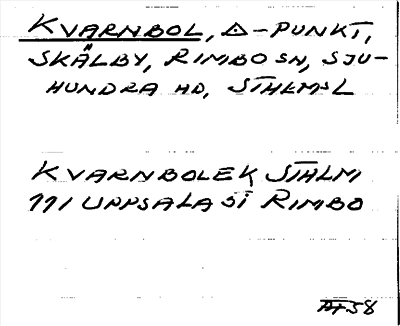 KVARNBOL, △-PUNKT,
SKÄLBY, RIMBO SN, SJU-
HUNDRA HD, STHLMSL
KVARNBOLEK STHLM
111 UPPSALA SI RIMBO